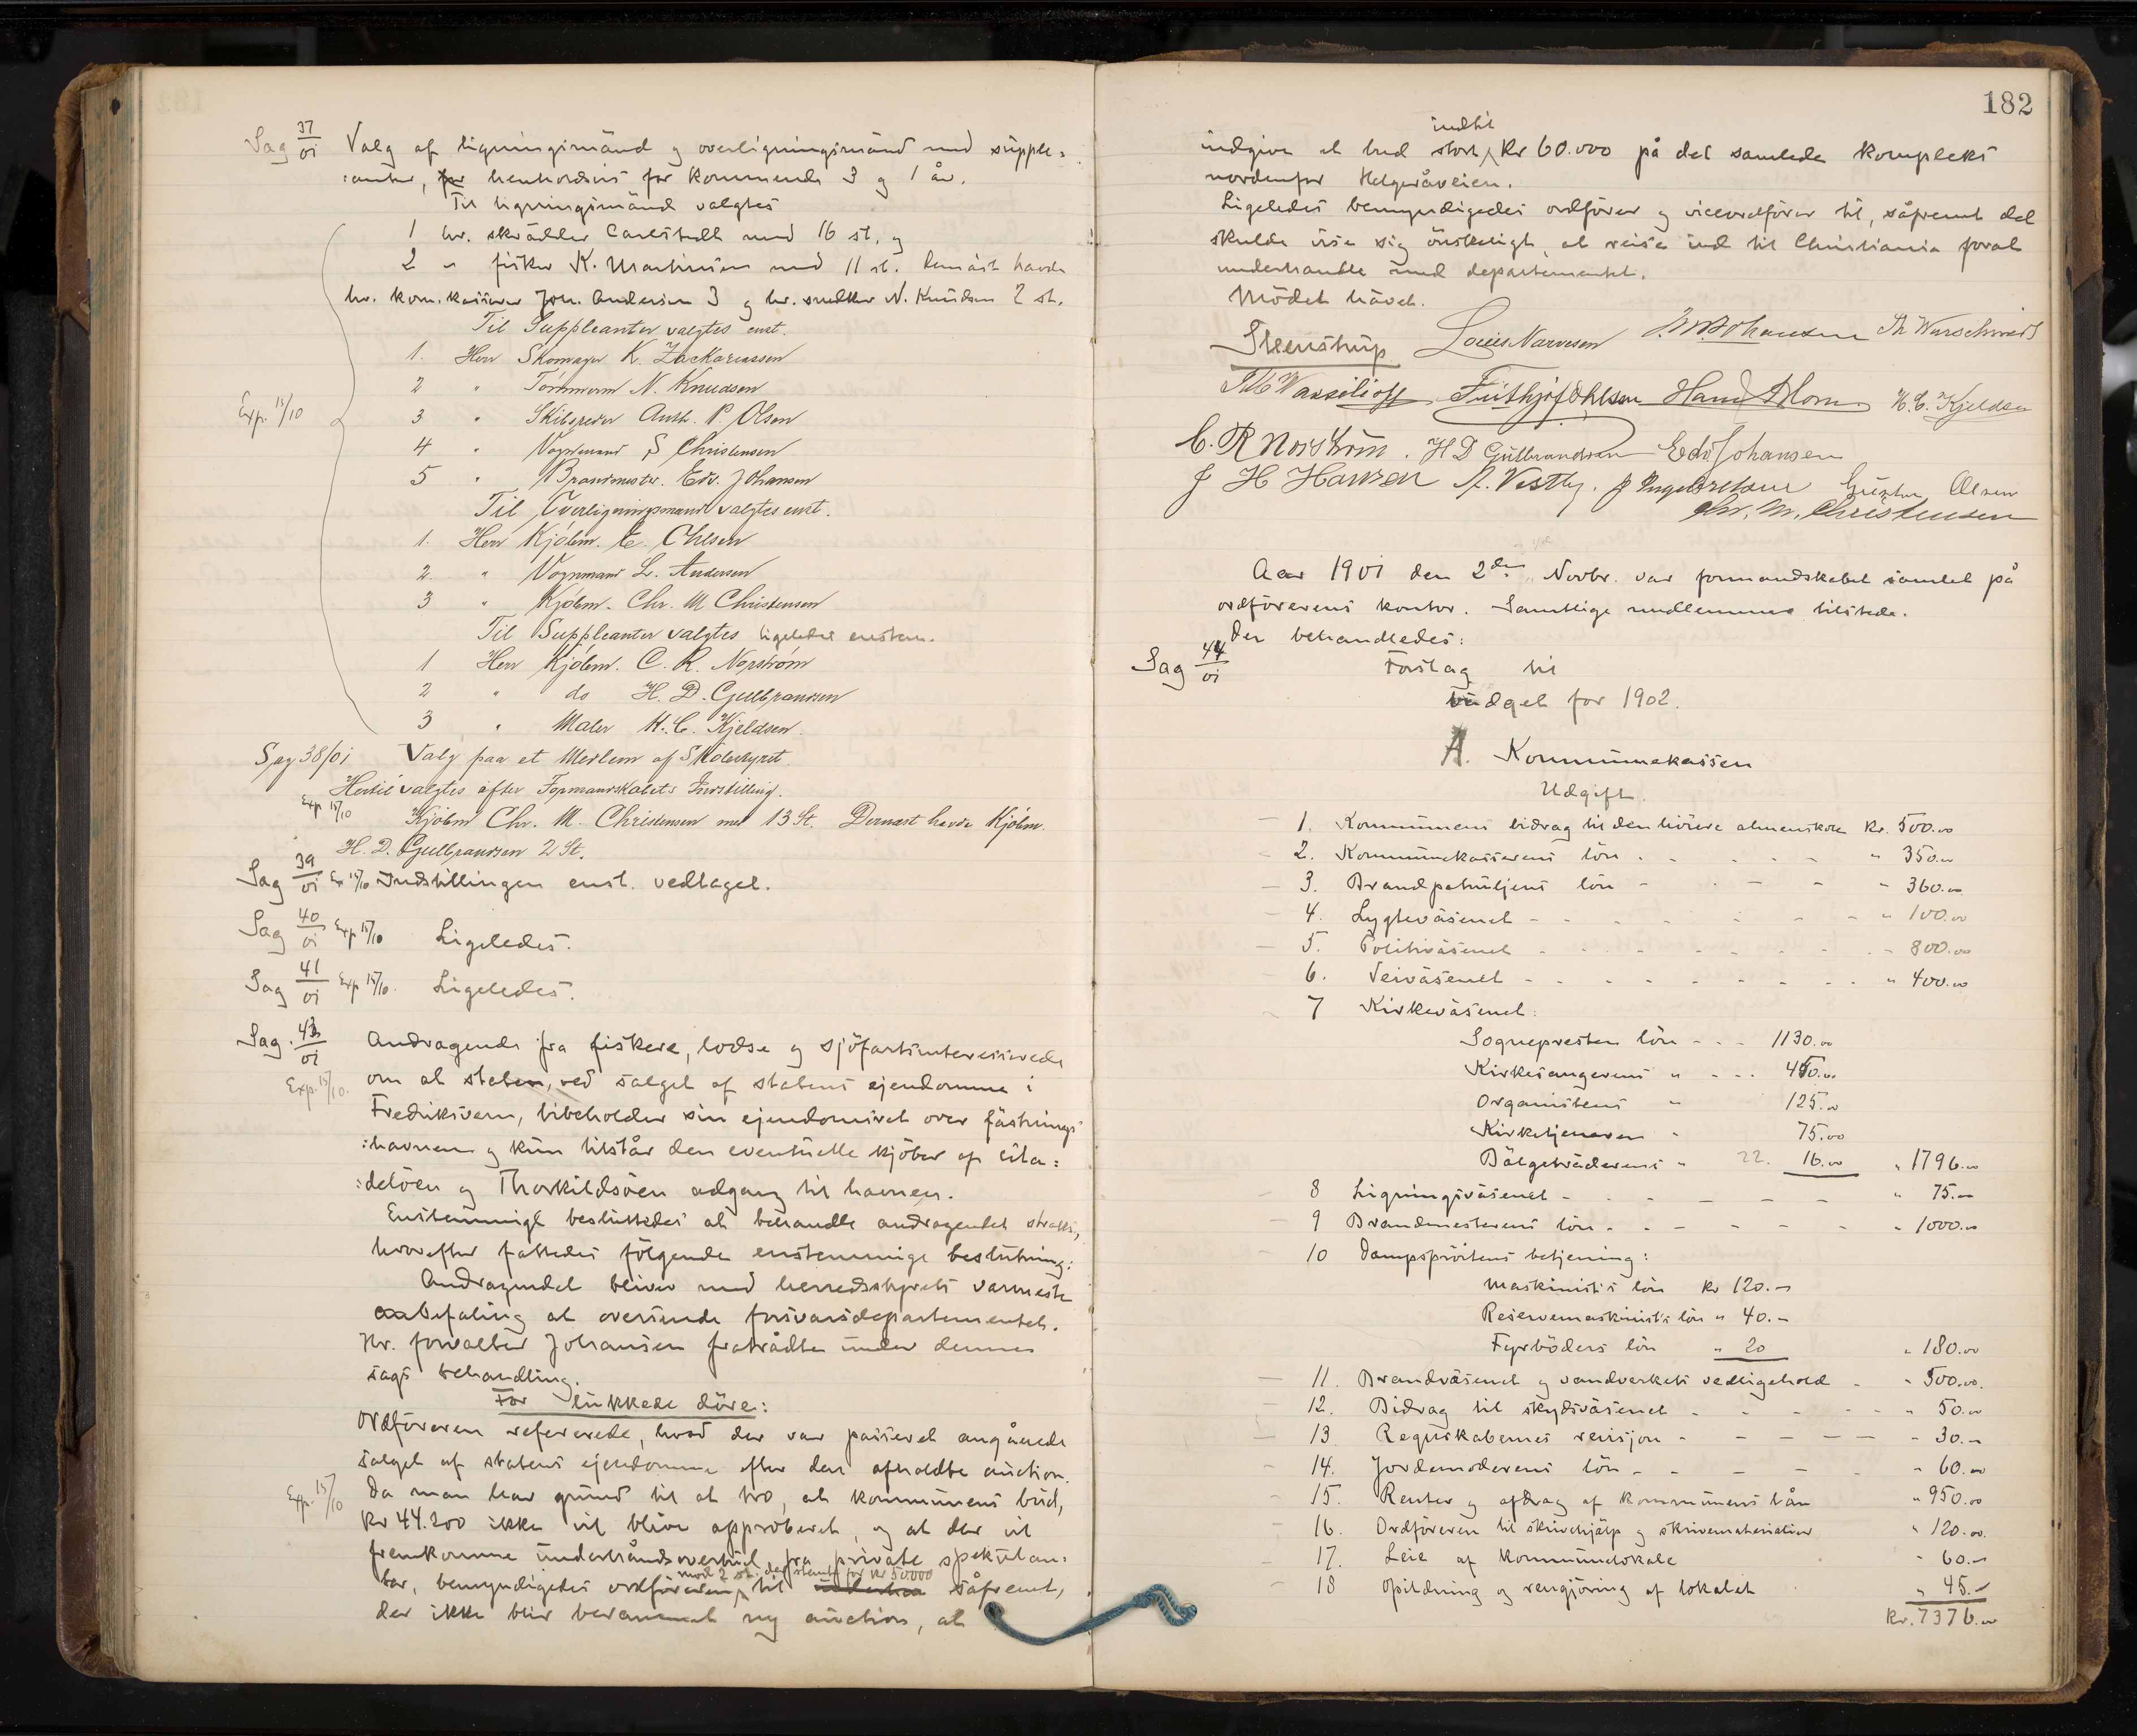 Sag 37/01 Valg af ligningsmänd og overligningsmänd med supple=
:anter, for henholdsvis for kommende 3 og 1 år.
Til ligningsmänd valgtes
1 hr. skrädder Carlstedt med 16 st. og
2 " fisker K. Martinsen med 11 st. Dernäst havde
hr. kom.kasserer Joh. Andersen 3 og hr. snedker N. Knudsen 2 st.
Til Suppleanter valgtes enst.
1. Herr Skomager K. Zackariassen
2 " Tømmerm N. Knudsen
Exp. 15/10
3 " Skibsreder Anth. P. Olsen
4 " Vognmand S Christensen
5 " Brandmester. Edv. Johansen
Til Overligningsmænd valgtes enst.
1. Herr Kjøbm. E. Ohlsen
2. " Vognmand L. Andersen
3 " Kjøbm. Chr. M Christensen
Til Suppleanter valgtes ligeledes enstem.
1 Herr Kjøbm. C. R. Norstrøm
2 " do H. D. Gulbrandsen
3 " Maler H. C. Kjeldsen.
Sag 38/01 Valg paa et Medlem af Skolestyret.
Hertil valgtes efter Formandskabets Indstilling.
Exp 15/10 Kjøbm Chr. M. Christensen med 13 St. Dernæst havde Kjøbm.
H. D. Gulbrandsen 2 St.
Sag 39/01 Ex 15/10 Indstillingen enst. vedtaget.
Sag 40/01 Exp 15/10 Ligeledes.
Sag 41/01 Exp 15/10. Ligeledes.
Sag. 43/01 Andragende fra fiskere, lodse og sjöfartsinteresserede
Exp. 15/10. om at staten, ved salget af statens ejendomme i
Fredriksvern, bibeholder sin ejendomsret over fästnings=
:havnen og kun tilstår den eventuelle kjöber af cita=
:delöen og Thorkildsöen adgang til havnen.
Enstemmigt besluttedes at behandle andragendet straks,
hvorefter fattedes fölgende enstemmige beslutning:
Andragendet bliver med herredsstyrets varmeste
anbefaling at oversende forsvarsdepartementet.
Hr. forvalter Johansen fratrådte under denne
sags behandling.
For lukkede döre:
Ordföreren refererede, hvad der var passeret angående
salget af statens ejendomme efter den afholdte auction.
Exp. 15/10 Da man har grund til at tro, at kommunens bud,
Kr 44.200 ikke vil blive approberet, og at der vil
fremkomme underhåndsoverbud fra private spekulan=
mod 2 st. der stemte for kr 50000
ter, bemyndigedes ordföreren til såfremt,
der ikke blir berammet ny auction, at
182
indtil
indgive et bud stort Kr 60.000 på det samlede kompleks
nordenfor Helgeråveien.
Ligeledes bemyndigedes ordförer og viceordförer til, såfremt det
skulde vise sig önskeligt, at reise ind til Christiania forat
underhandle med departementet.
Mödet hävet.
Steenstrup Louis Narvesen Johansen Th Warschewitz
Wassilioff Frithjof Ohlsen Hans Blom H. C. Kjeldsen
C. R Norström. H D Gulbrandsen Edv Johansen
J H Hansen A. Vestby. J Ingebretsen Gustav Olsen
Chr. M. Christensen
Aar 1901 den 2den Novbr. var formandskabet samlet på
ordförerens kontor. Samtlige medlemmer tilstede.
Der behandledes:
Sag 44/01 Forslag til
budget for 1902.
A. Kommunekassen
Udgift.
1. Kommunens bidrag til den höiere almenskole Kr. 500.00
2. Kommunekassererens lön " 350.00
3. Brandpatruljens lön " 360.00
4. Lygteväsenet " 100.00
5. Politiväsenet " 800.00
6. Veiväsenet " 400.00
7 Kirkeväsenet:
Sognepresten lön 1130.00
Kirkesangerens " 450.00
Organistens " 125.00
Kirketjeneren " 75.00
Bälgeträderens " 22. 16.00 " 1796.00
8 Ligningsväsenet " 75.00
9 Brandmesterens lön " 1000.00
10 Dampspröitens betjening:
Maskinist's lön Kr 120.-
Reservemaskinist's lön " 40.-
Fyrböders lön " 20 " 180.00
11. Brandväsenet og vandverkets vedligehold " 500.00.
12. Bidrag til skydsväsenet " 50.00
13 Regnskabernes revisjon " 30.-
14. Jordemoderens lön " 60.00
15. Renter og afdrag af kommunens lån " 950.00
16. Ordföreren til skrivehjälp og skrivematerialier " 120.00.
17. Leie af kommunelokale " 60.00
18 Opildning og rengjöring af lokalet " 45.-
Kr. 7376.00